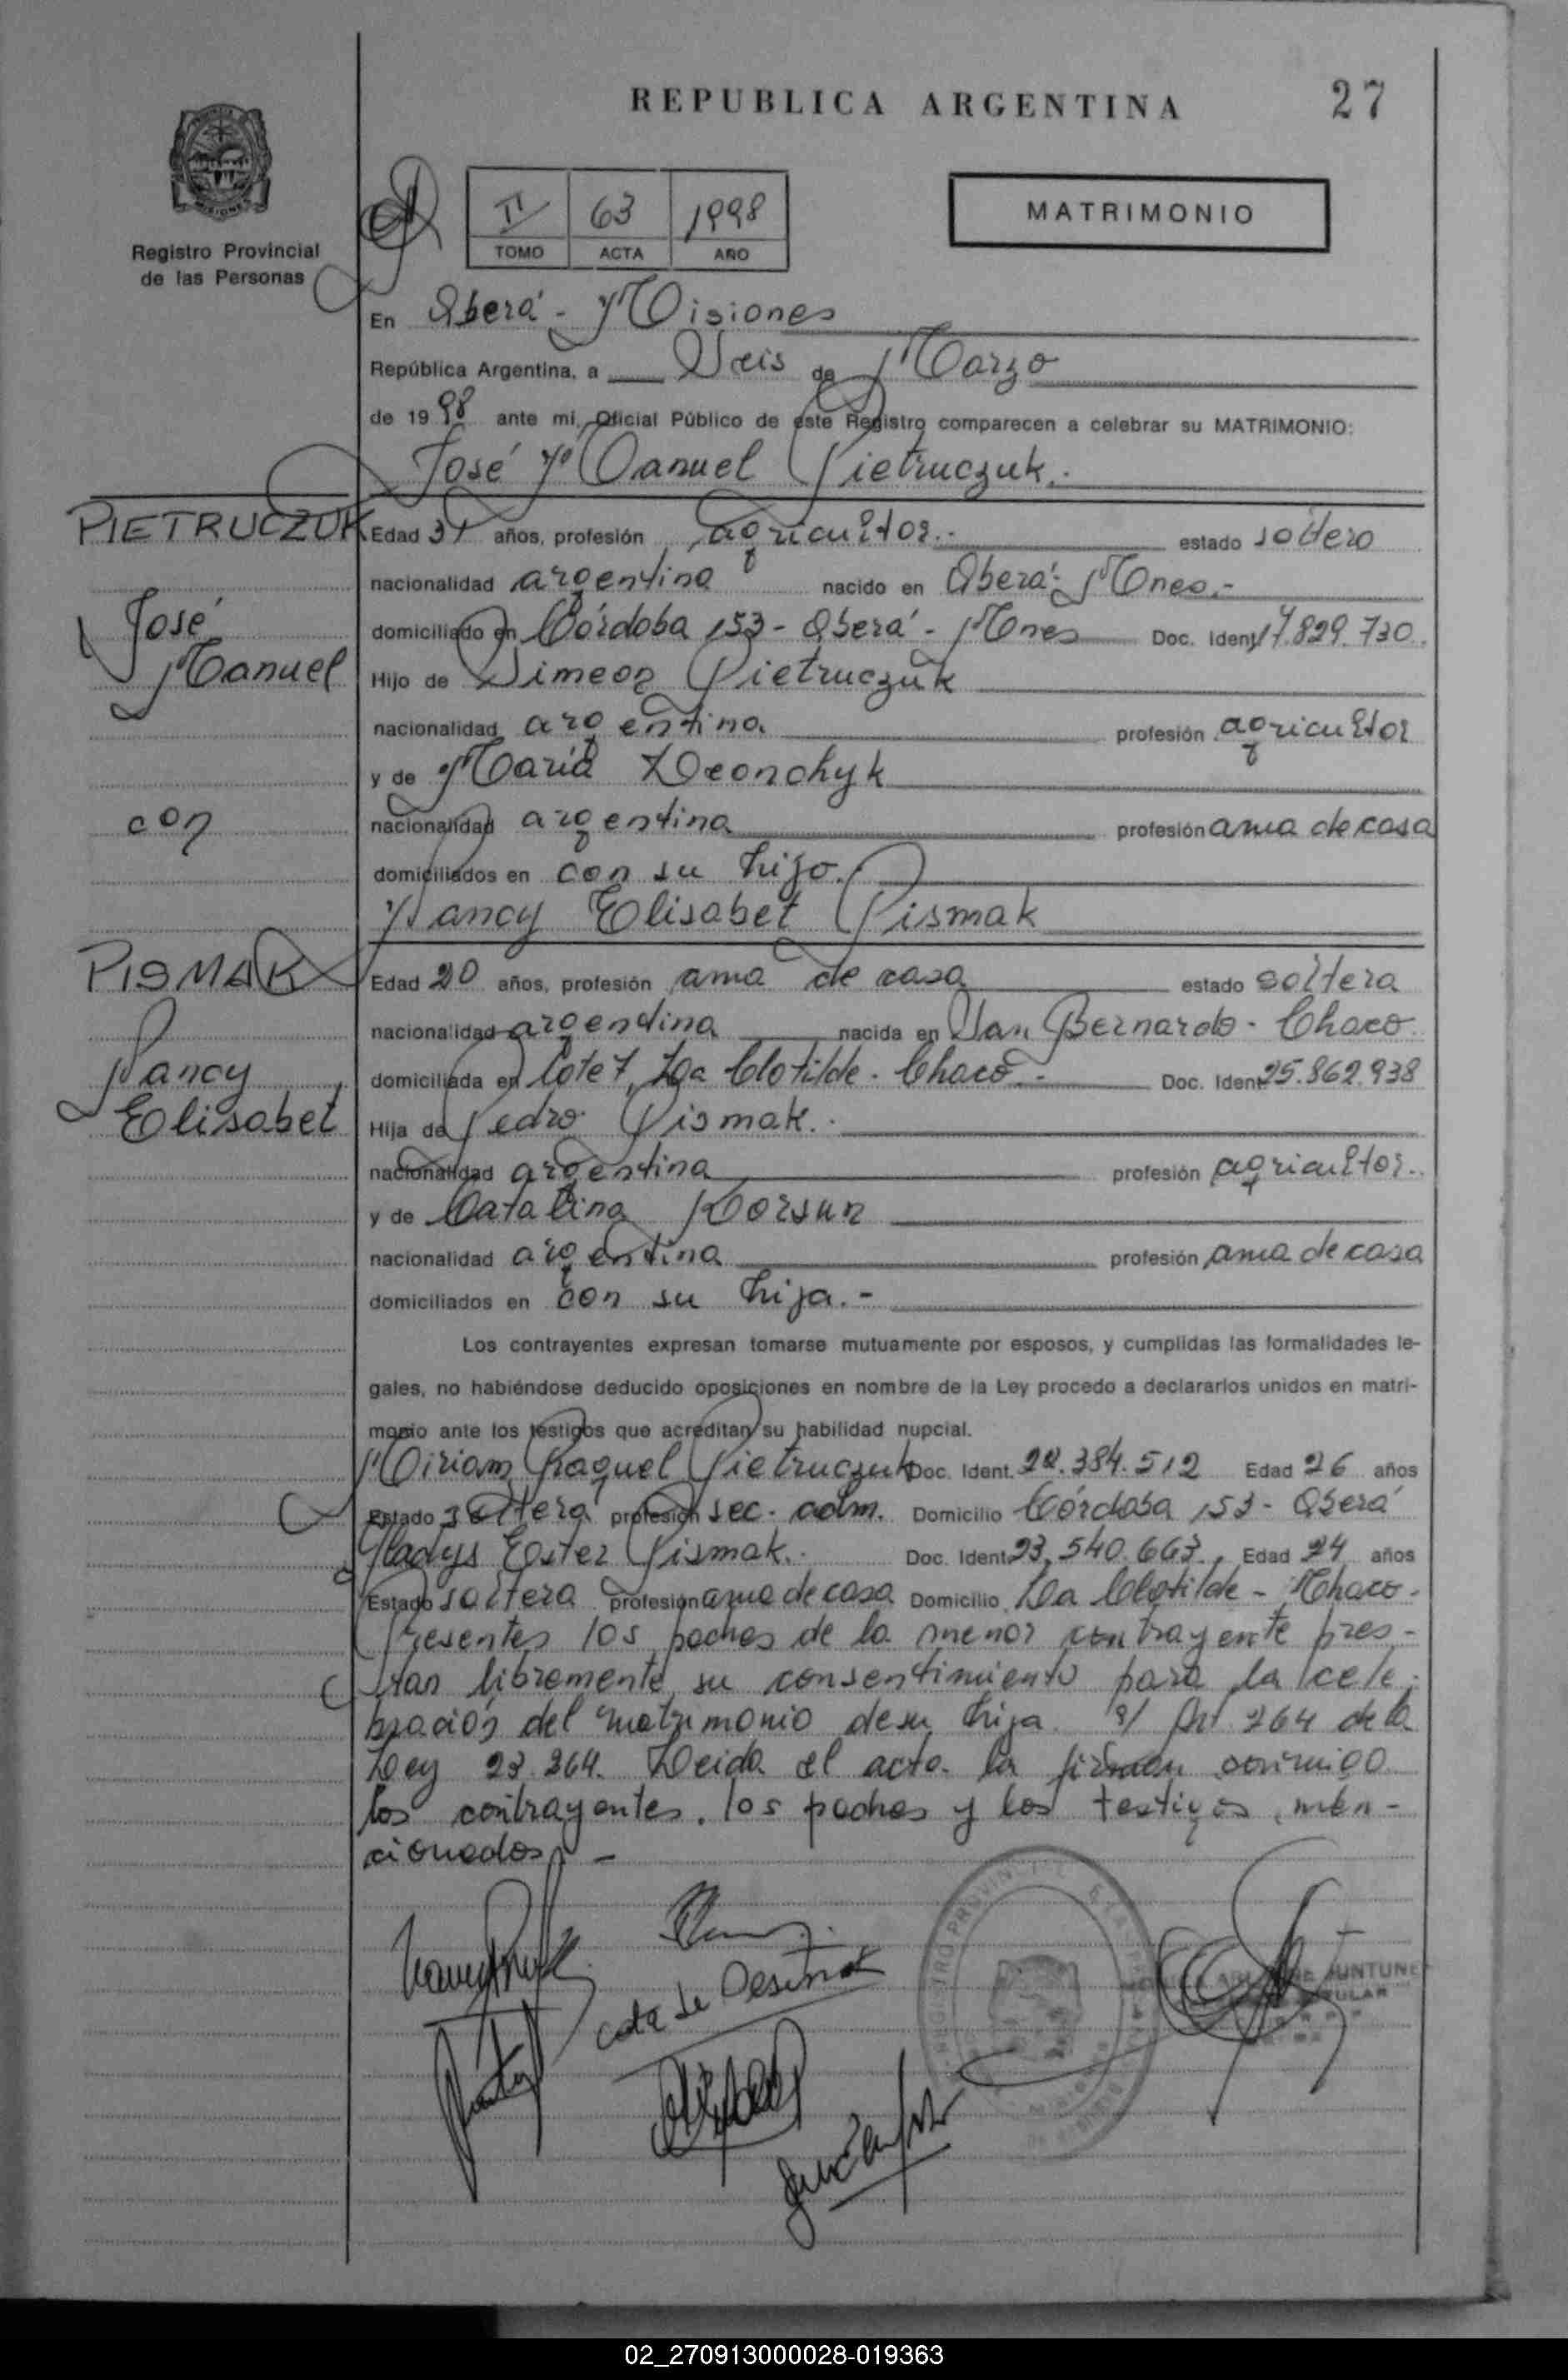 REPUBLICA ARGENTINA
27
MISIONES
Registro Provincial
de las Personas
II 63 1998
TOMO ACTA AÑO
MATRIMONIO
En Oberá - Misiones
República Argentina, a Seis de Marzo
de 1998 ante mi, Oficial Público de este Registro comparecen a celebrar su MATRIMONIO:
José Manuel Pietruczuk.-
PIETRUCZUK
José
Manuel
con
PISMAK
Nancy
Elisabet
Edad 31 años, profesión agricultor.- estado soltero
nacionalidad argentina nacido en Oberá- Mnes.-
domiciliado en Córdoba 153 - Oberá - Mnes Doc. Ident. 17.829.730.
Hijo de Simeon Pietruczuk
nacionalidad argentina profesión agricultor
y de María Leonchyk
nacionalidad argentina profesión ama de casa
domiciliados en con su hijo.-
Nancy Elisabet Pismak
Edad 20 años, profesión ama de casa estado soltera
nacionalidad argentina nacida en San Bernardo - Chaco
domiciliada en Lote 7, La Clotilde - Chaco.- Doc. Ident. 25.862.938
Hija de Pedro Pismak.-
nacionalidad argentina profesión agricultor.
y de Catalina Korsun
nacionalidad argentina profesión ama de casa
domiciliados en con su hija.-
Los contrayentes expresan tomarse mutuamente por esposos, y cumplidas las formalidades le-
gales, no habiéndose deducido oposiciones en nombre de la Ley procedo a declararlos unidos en matri-
monio ante los testigos que acreditan su habilidad nupcial.
Miriam Raquel Pietruczuk Doc. Ident. 22.384.512 Edad 26 años
Estado soltera profesión sec. adm. Domicilio Córdoba 153 - Oberá
Gladys Ester Pismak.- Doc. Ident. 23.540.663, Edad 24 años
Estado soltera profesión ama de casa Domicilio La Clotilde - Chaco.
Presentes los padres de la menor contrayente pres-
tan libremente su consentimiento para la cele-
bración del matrimonio de su hija s/ Art 264 de la
Ley 23.264. Leida el acta la firman conmigo
los contrayentes, los padres y los testigos men-
cionados.-
02_270913000028-019363